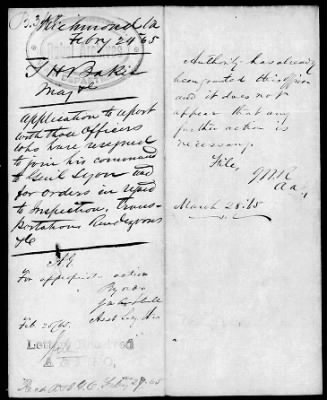 Richmond Va
Feby 24 65
T. H. Baker
Maj &c
Application to report
with those Officers
who have resigned
to join his command
to Genl
for orders in regard
to Inspection, Trans-
portation, Rendezvous
&c
A.G.
For appropriate action
By order
Feb 26/65.
Letters Received
A. & I. G. O.
Feby 27. 65
Authority has already
been granted this Officer
and it does not
appear that any
further action is
necessary.
File,
March 28/65